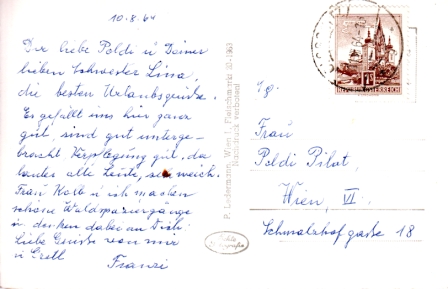 10.8.64
Dir liebe Poldi u Deiner
lieben Schwester Lina,
die besten Urlaubsgrüße.
Es gefällt uns hier ganz
gut, sind gut unterge-
bracht Verpflegung gut, da
lauter alte Leute, weich.
Frau u ich machen
schöne Waldspaziergänge
u denken dabei an Dich.
Liebe Grüße von mir
u Gretl
Franzi
P. Ledermann, Wien I, Fleischmarkt
Nachdruck verboten!
Echte
Fotografie
REPUBLIK ÖSTERREICH
Frau
Poldi Pilat,
Wien, VI.,
Schmalzhofgasse 18